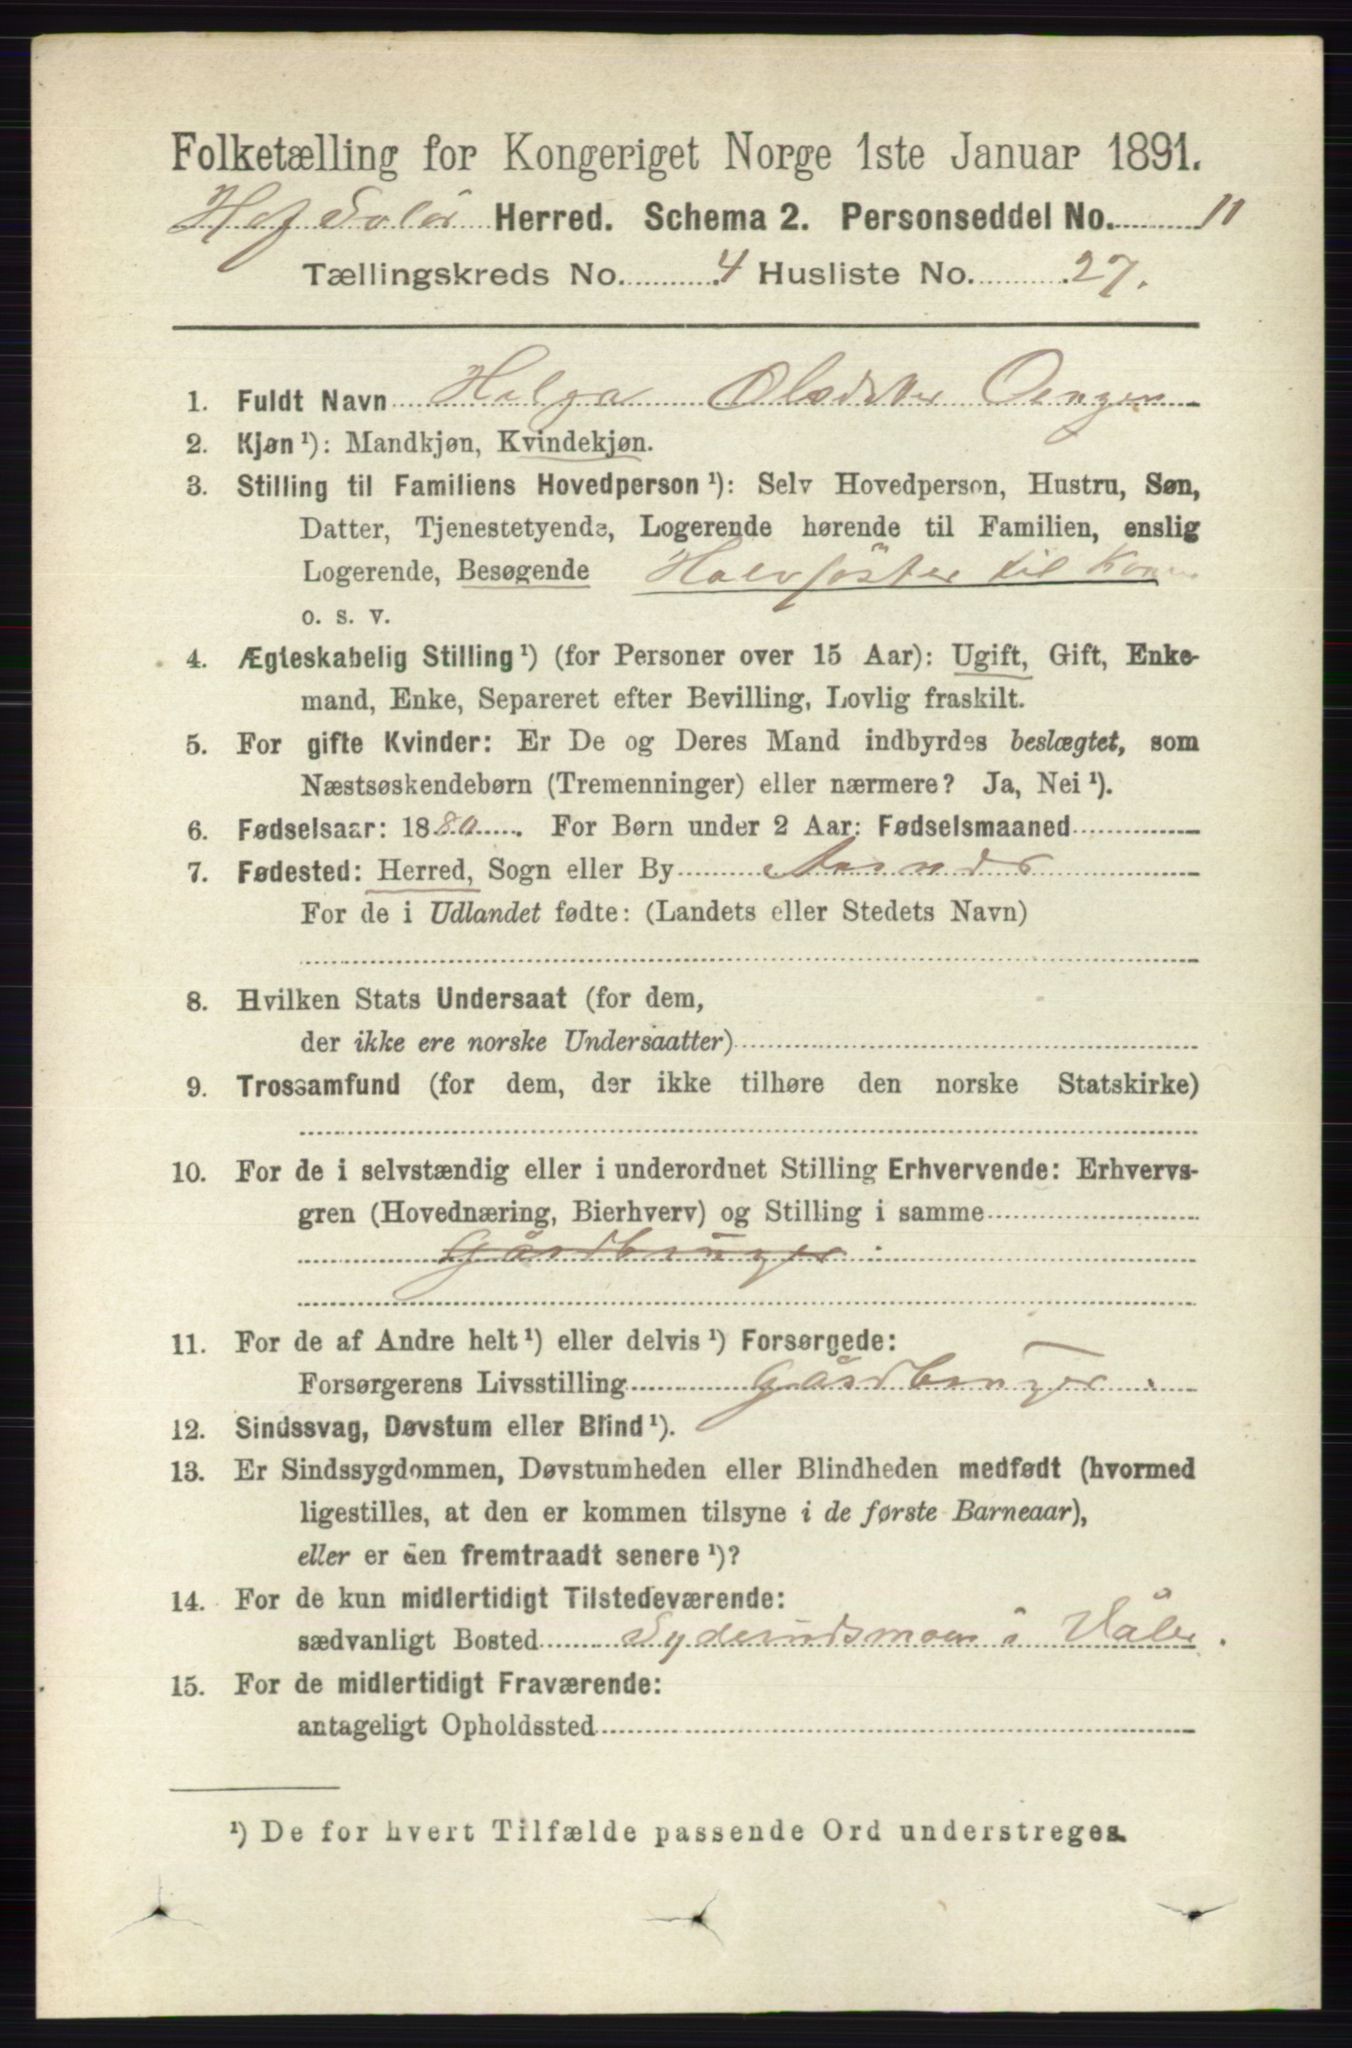 Folketælling for Kongeriget Norge 1ste Januar 1891.
Hof Solør Herred. Schema 2. Personseddel No. 11
Tællingskreds No. 4 Husliste No. 27.
1. Fuldt Navn Helga Olsdatter
2. Kjøn¹): Mandkjøn, Kvindekjøn.
3. Stilling til Familiens Hovedperson¹): Selv Hovedperson, Hustru, Søn,
Datter, Tjenestetyende, Logerende hørende til Familien, enslig
Logerende, Besøgende Halvsöster til Konen
o. s. v.
4. Ægteskabelig Stilling¹) (for Personer over 15 Aar): Ugift, Gift, Enke-
mand, Enke, Separeret efter Bevilling, Lovlig fraskilt.
5. For gifte Kvinder: Er De og Deres Mand indbyrdes beslægtet, som
Næstsøskendebørn (Tremenninger) eller nærmere? Ja, Nei¹).
6. Fødselsaar: 1880. For Børn under 2 Aar: Fødselsmaaned
7. Fødested: Herred, Sogn eller By
For de i Udlandet fødte: (Landets eller Stedets Navn)
8. Hvilken Stats Undersaat (for dem,
der ikke ere norske Undersaatter)
9. Trossamfund (for dem, der ikke tilhøre den norske Statskirke)
10. For de i selvstændig eller i underordnet Stilling Erhvervende: Erhvervs-
gren (Hovednæring, Bierhverv) og Stilling i samme
Gårdbruger
11. For de af Andre helt¹) eller delvis¹) Forsørgede:
Forsørgerens Livsstilling Gårdbruger.
12. Sindssvag, Døvstum eller Blind¹).
13. Er Sindssygdommen, Døvstumheden eller Blindheden medfødt (hvormed
ligestilles, at den er kommen tilsyne i de første Barneaar),
eller er den fremtraadt senere¹)?
14. For de kun midlertidigt Tilstedeværende:
sædvanligt Bosted Syderudsmoen i Våler.
15. For de midlertidigt Fraværende:
antageligt Opholdssted
¹) De for hvert Tilfælde passende Ord understreges.